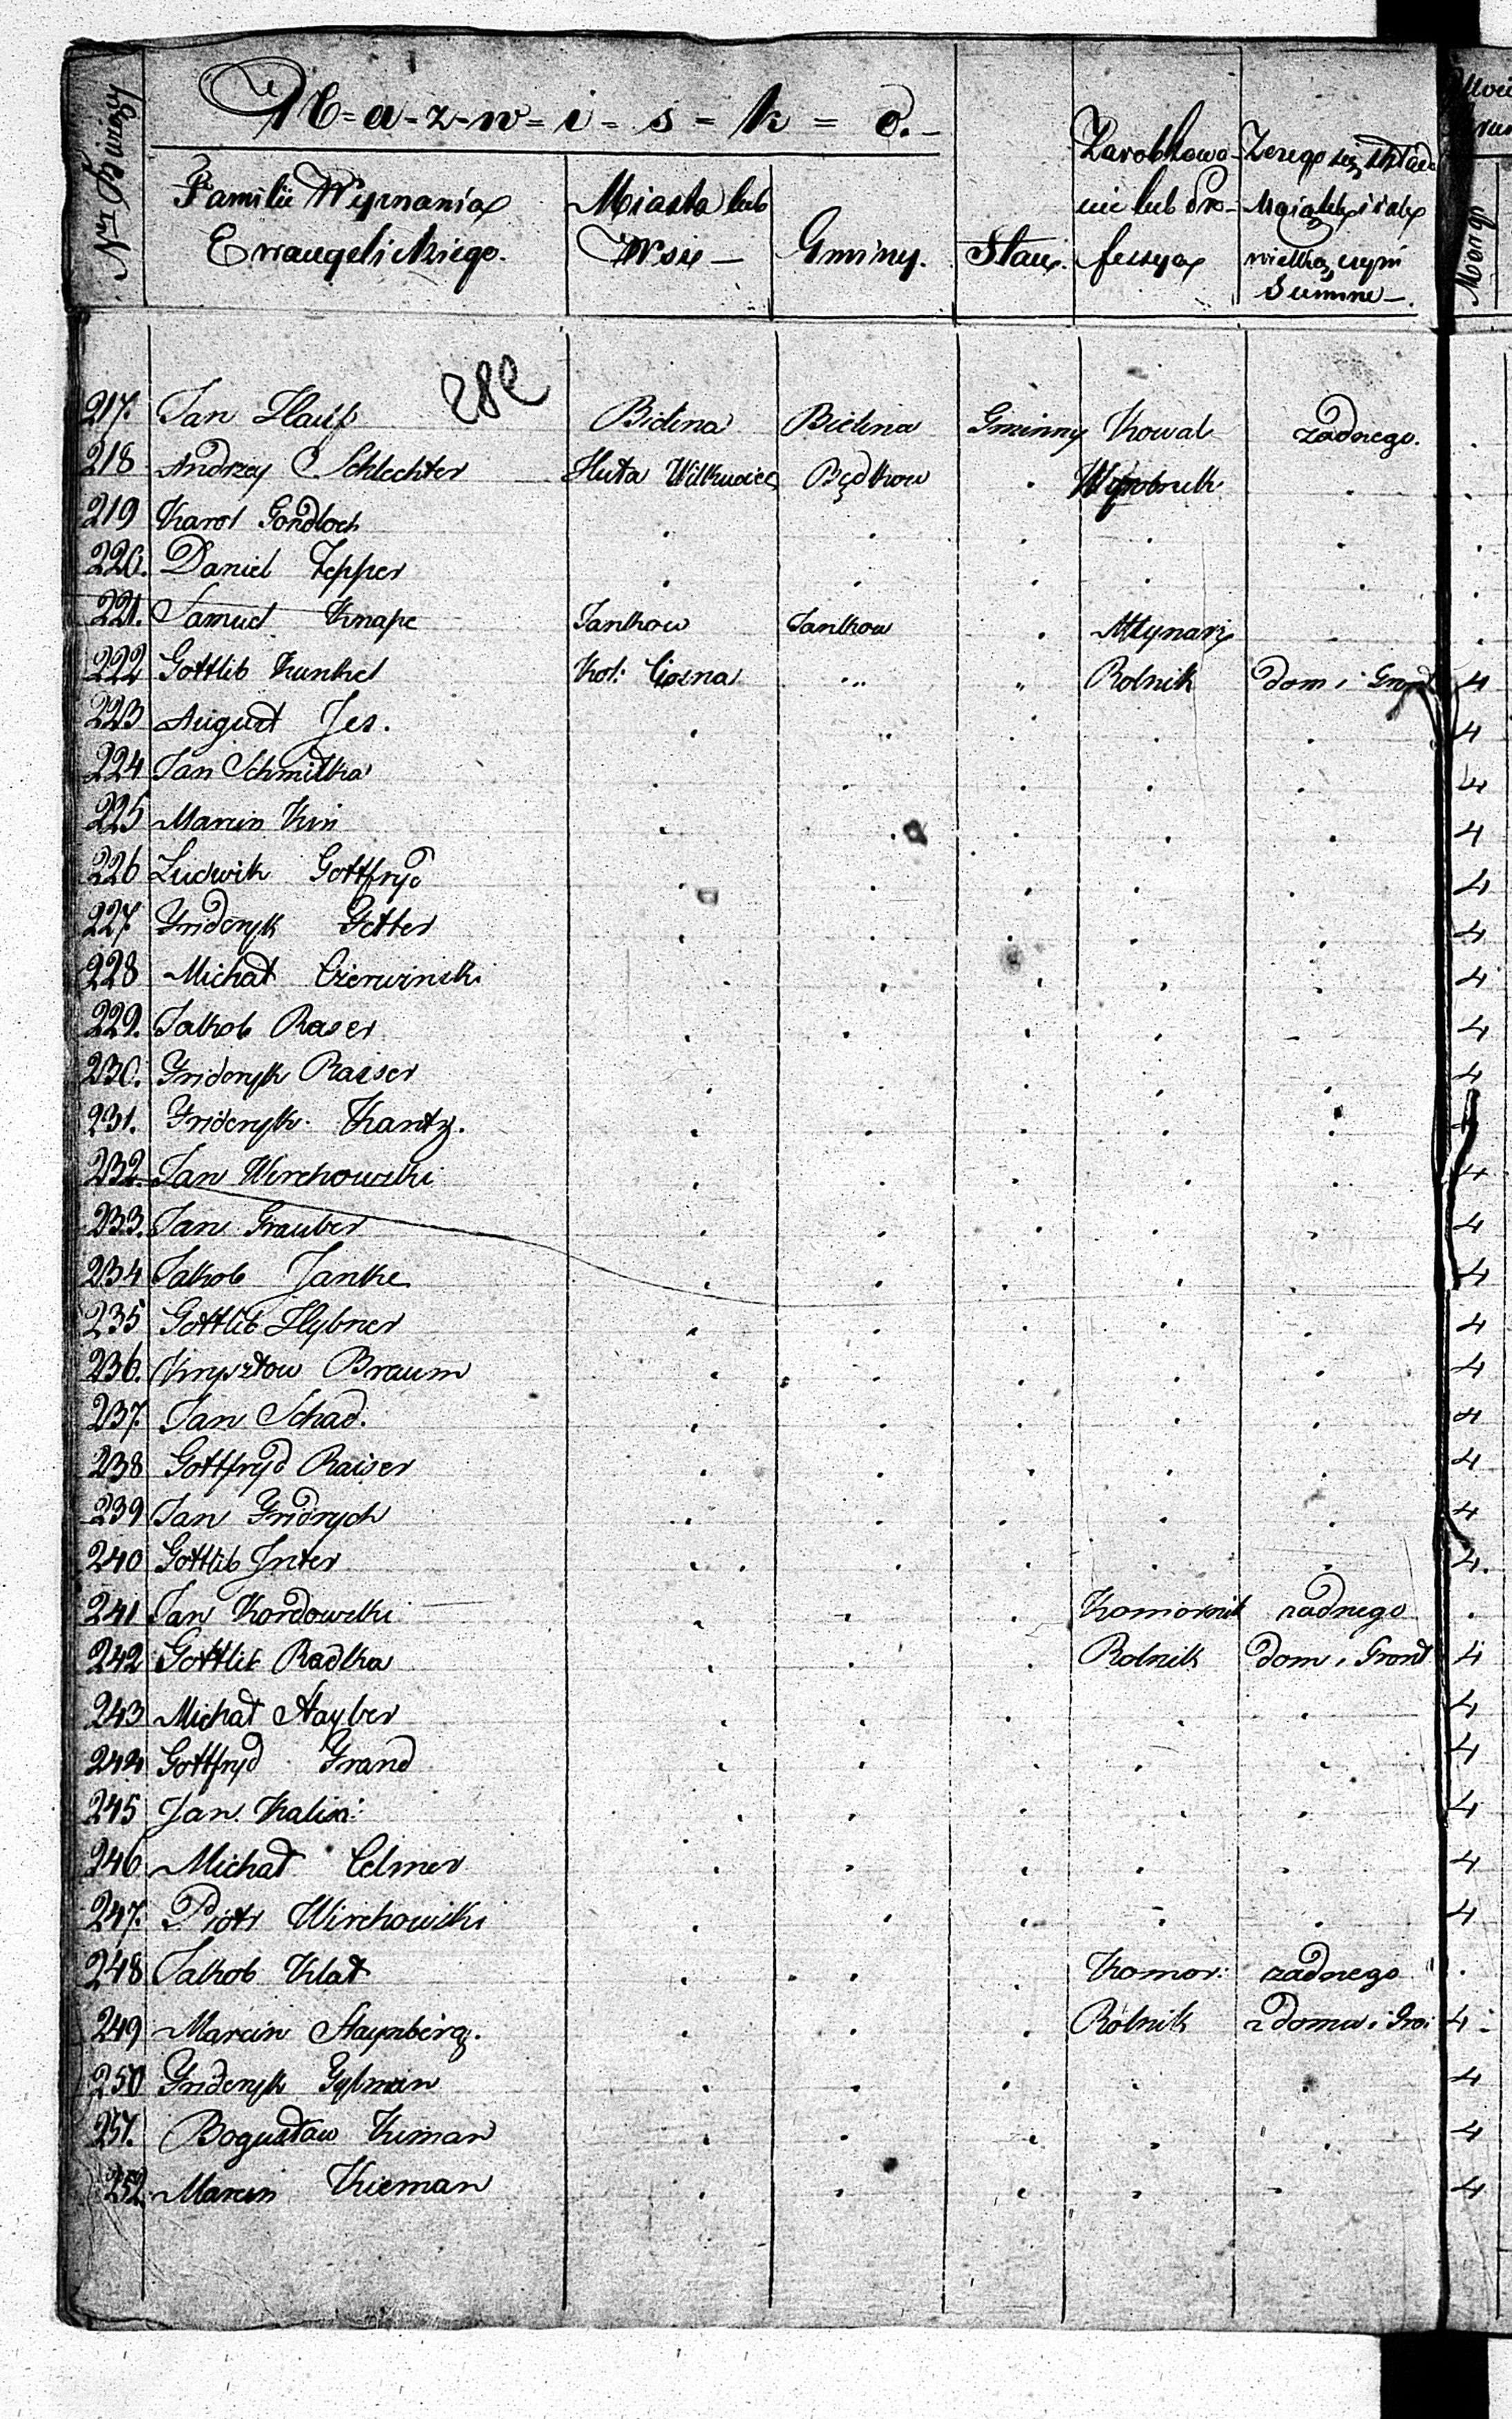 N-a-z-w-i-s-k-o.
Familii Wyznania Miasta lub Zarobkowa- Zczego się składa
Ewangelickiego. Wsie Gminy. Stan. nie lub Pro- Maiątek i iaką
fessya wielką czyni
Summe Morgi
282
217. Jan Hauf Bielina Bielina Gminny Kowal żadnego.
218 Andrzey Schlechter Huta Wilkucice Będkow Wyrobnik
219 Karol Gondloch
220. Daniel Zepper
221. Samuel Knape Jankow Jankow Młynarz
222 Gottlib Kunkel Kol: Ciosna Rolnik dom i Gront 4
223 August Jes. 4
224 Jan Schmilka 4
225 Marcin Kin 4
226 Ludwik Gottfryd 4
227 Frideryk Getter 4
228 Michał Czerwinski 4
229. Jakob Raser 4
230. Frideryk Raiser 4
231. Frideryk Kantz.
232. Jan Wirchowski 4
233. Jan Grauber 4
234 Jakob Janke 4
235 Gottlib Hybner 4
236. Krysztow Braum 4
237. Jan Schad. 4
238 Gottfryd Raiser 4
239 Jan Fridrych 4
240 Gottlib Inter 4.
241 Jan Kordowski Komornik żadnego
242 Gottlib Radka Rolnik dom i Gront 4
243 Michał Hayber 4
244 Gottfryd Frand 4
245 Jan Kaliski 4
246 Michał Celmer 4
247. Piotr Wirchowski 4
248 Jakob Klat Komor: żadnego
249 Marcin Haynberg. Rolnik z domu i Gro: 4
250 Frideryk Gylman 4
251. Bogusław Kiman 4
252. Marcin Kieman 4